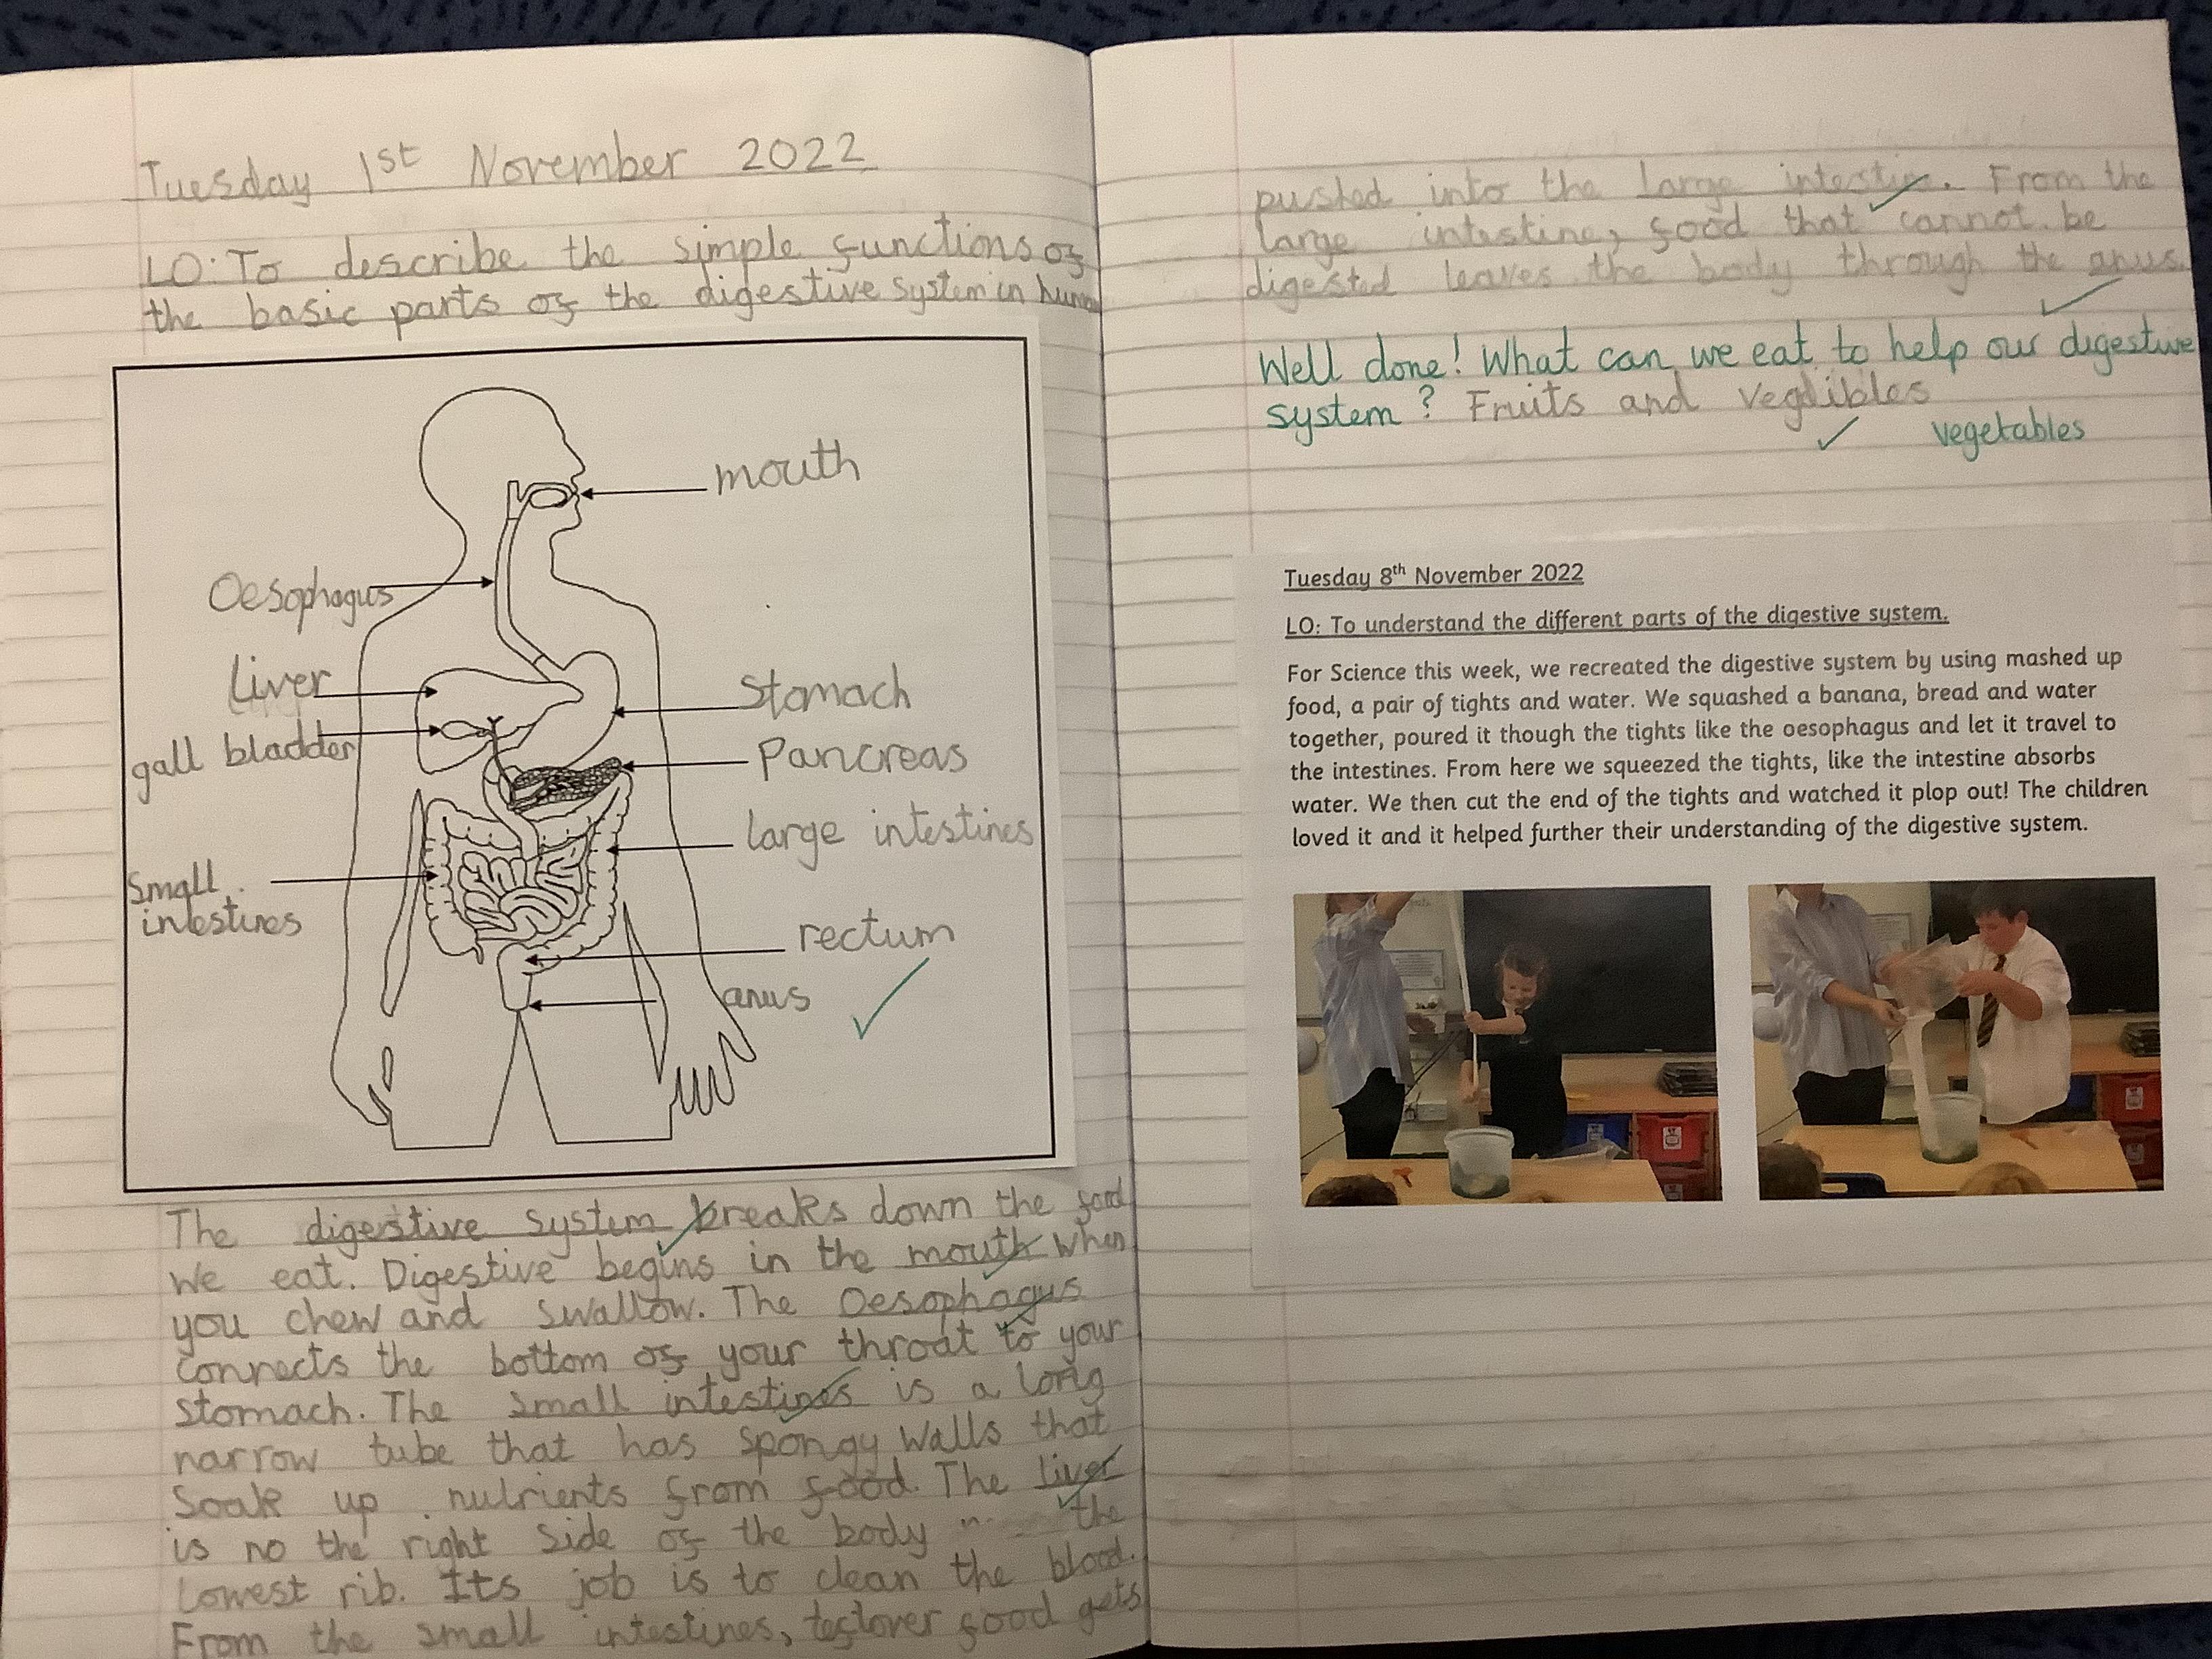 Tuesday 1st November 2022
LO: To describe the simple functions of
the basic parts of the digestive system in
mouth
Oesophagus
Liver
gall bladder
Stomach
Pancreas
large intestines
Small
intestines
rectum
anus
The digestive system breaks down the food
we eat. Digestive begins in the mouth when
you chew and swallow. The Oesophagus
connects the bottom of your throat to your
stomach. The small intestines is a long
narrow tube that has spongy walls that
soak up nutrients from food. The liver
is no the right side of the body the
lowest rib. Its job is to clean the blood.
From the small intestines, food gets
pushed into the large intestine. From the
large intestine, food that cannot be
digested leaves the body through the anus.
Well done! What can we eat to help our digestive
system? Fruits and
vegetables
Tuesday 8th November 2022
LO: To understand the different parts of the digestive system.
For Science this week, we recreated the digestive system by using mashed up
food, a pair of tights and water. We squashed a banana, bread and water
together, poured it though the tights like the oesophagus and let it travel to
the intestines. From here we squeezed the tights, like the intestine absorbs
water. We then cut the end of the tights and watched it plop out! The children
loved it and it helped further their understanding of the digestive system.